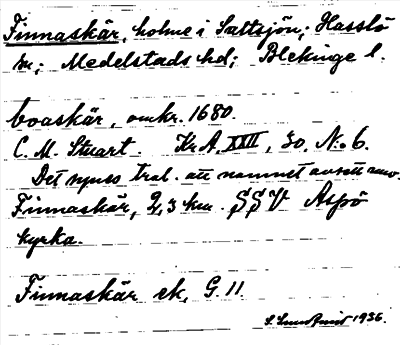 Finnaskär, holme i Saltsjön; Hasslö
sn; Medelstads hd; Blekinge l.
boaskär, omkr. 1680.
C. M. Stuart. Kr. A. XXII, 30, No 6.
Det synes trol. att namnet avsett nuv.
Finnaskär, 2,3 km. SSV Aspö
kyrka.
Finnaskär ek, G. 11.
1936.